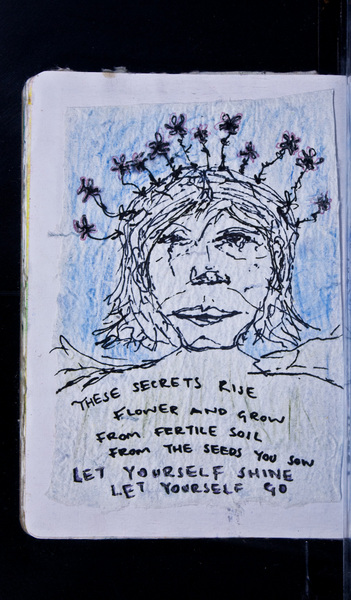 THESE SECRETS RISE
FLOWER AND GROW
FROM FERTILE SOIL
FROM THE SEEDS YOU SOW
LET YOURSELF SHINE
LET YOURSELF GO